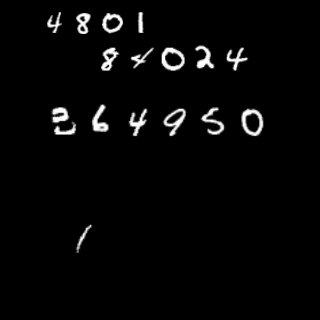 4801
84024
364950
1